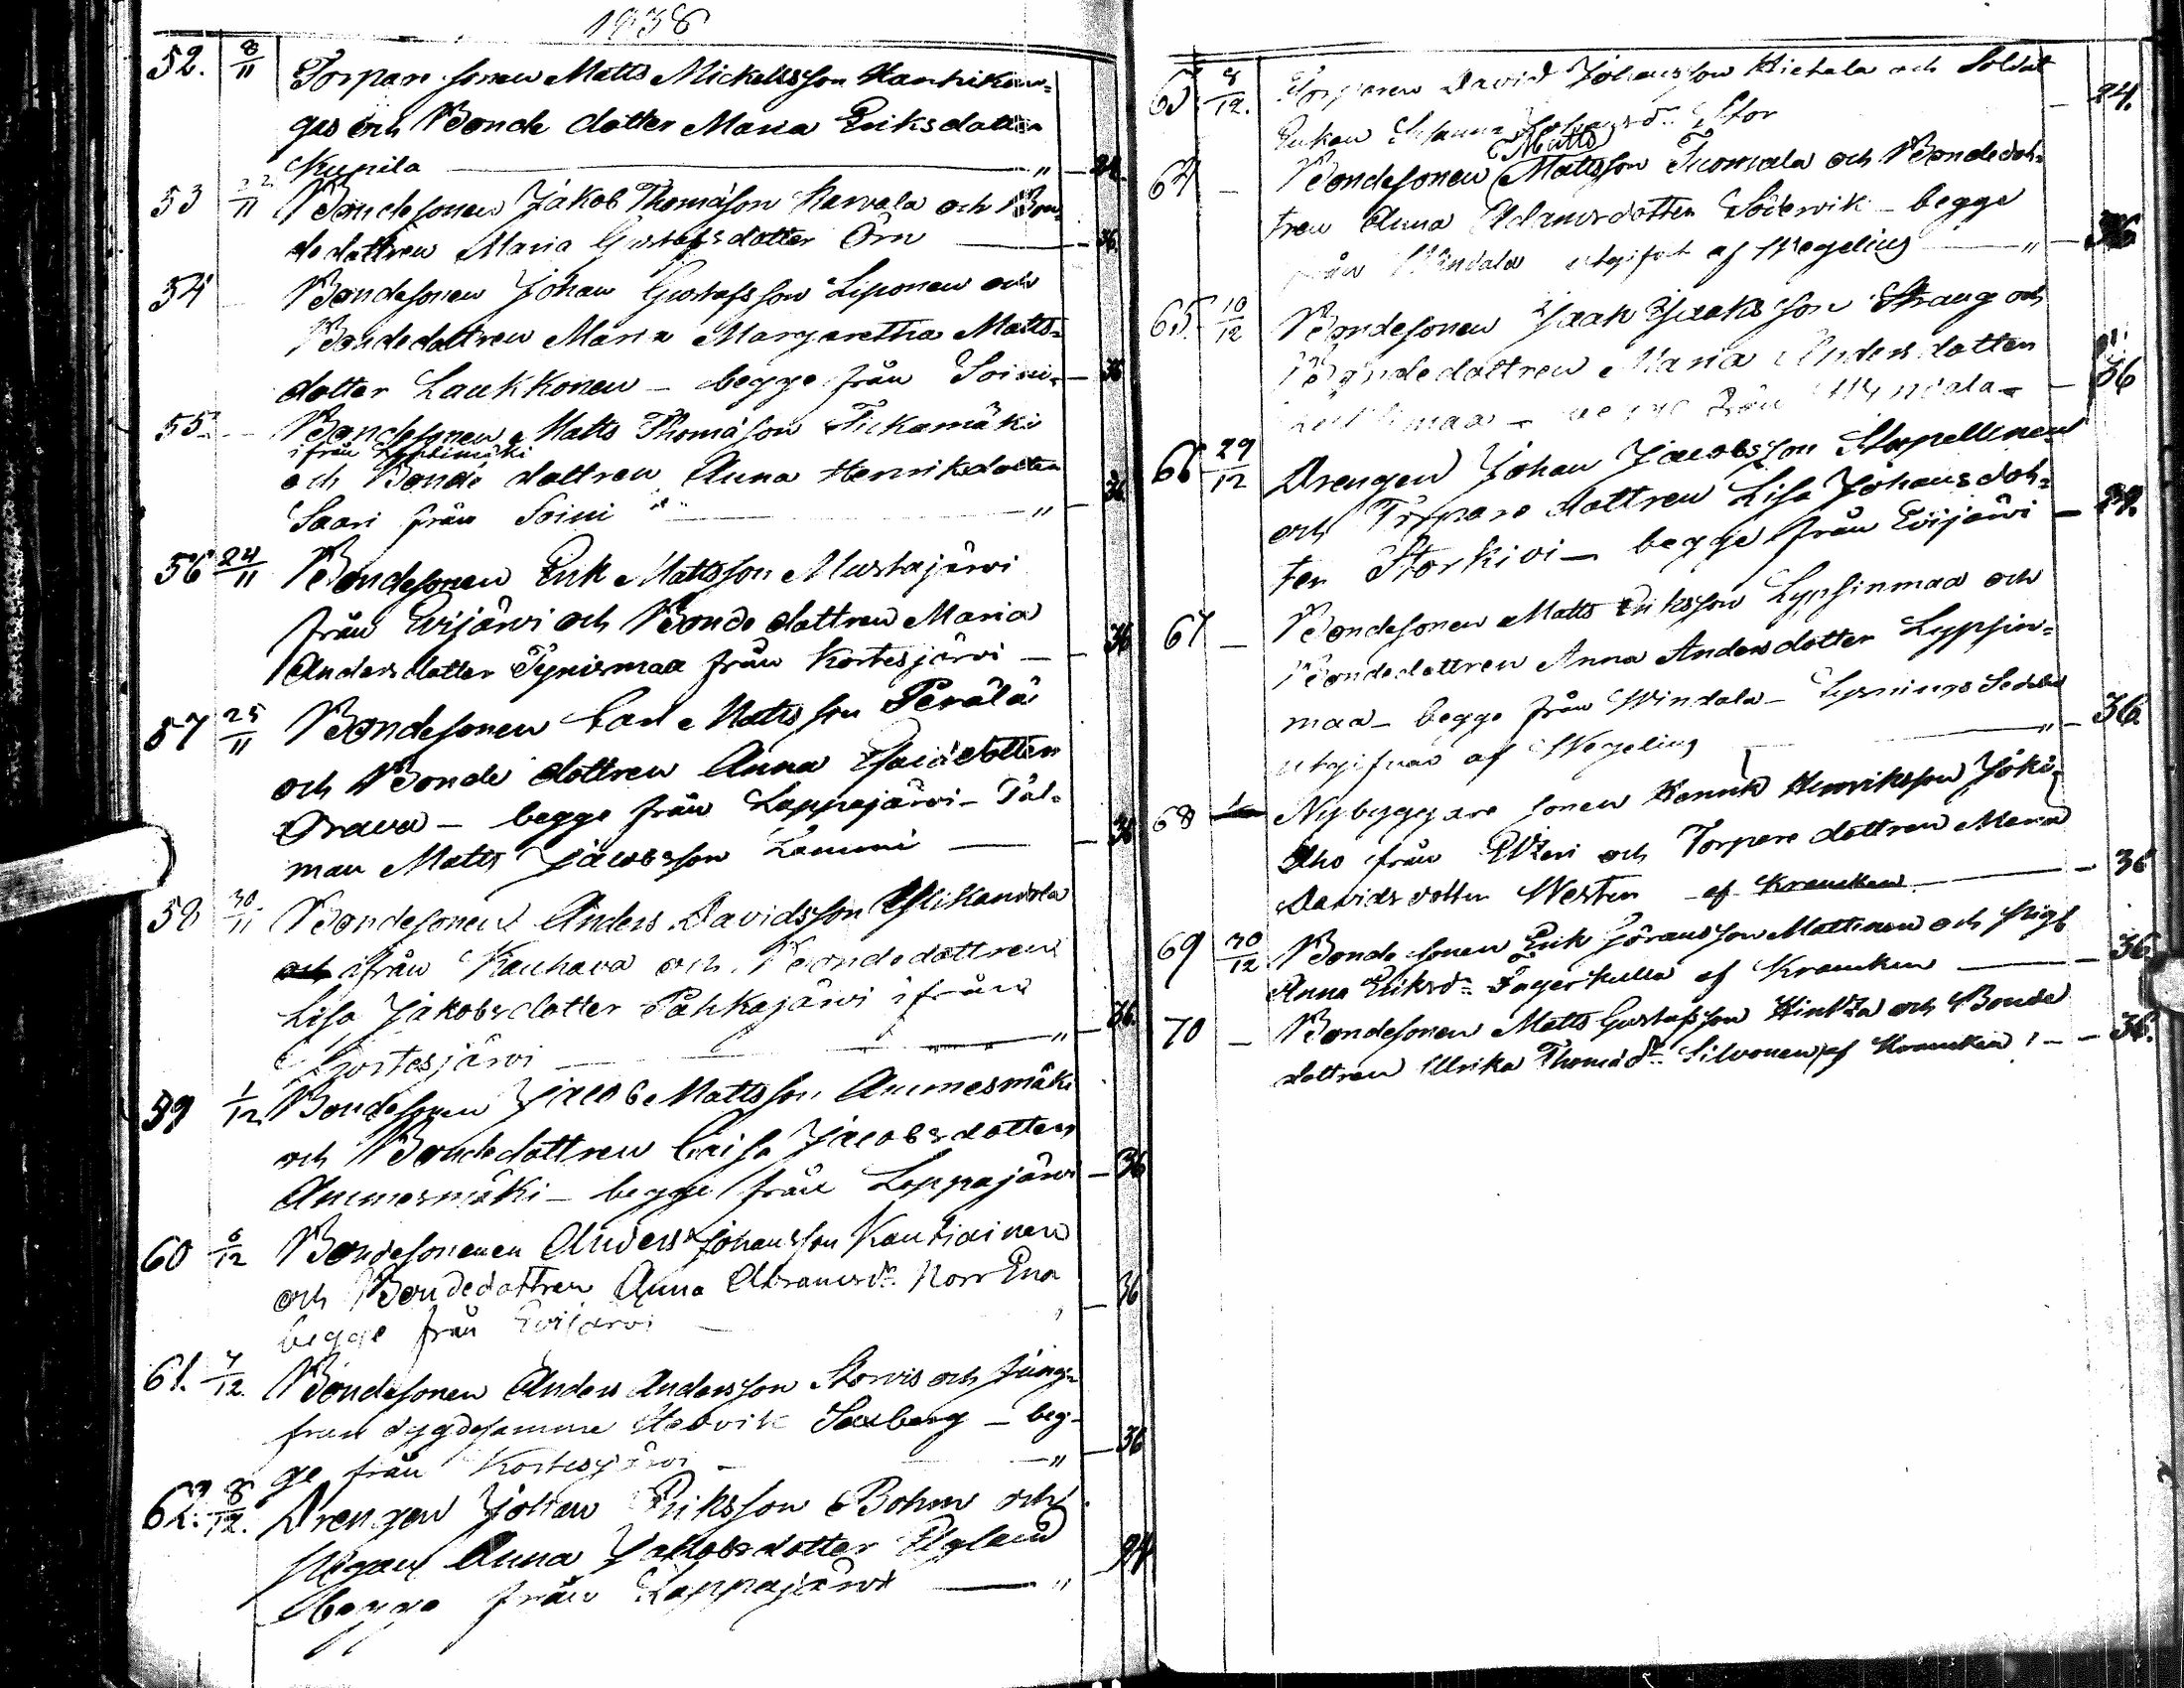 1838
52. 8/11 Torpare sonen Matts Mickelsson Kantikan=
gas och Bonde dotter Maria Eriksdotter
Kujnila — " — 24.
53 22/11 Bondesonen Jakob Thomasson Karvala och Bon=
de dottren Maria Gustafsdotter Örn — 36.
54 — Bondesonen Johan Gustafsson Liponen och
Bondedottren Maria Margaretha Matts=
dotter Laukkonen — begge från Soini — 36
55. — Bondesonen Matts Thomasson Tickamäki
ifrån
och Bonde dottren Anna Henriksdotter
Saari från Soini — " — 36
56 24/11 Bondesonen Erik Mattsson Mustajärvi
från Evijärvi och Bonde dottren Maria
Andersdotter Pynismaa från Kortesjärvi — 36
57 25/11 Bondesonen Carl Matts son Perälä
och Bonde dottren Anna Esaiedotter
Orava — begge från Lappajärvi — Tal=
man Matts Jacobsson Lammi — 36
58 30/11 Bondesonen Anders Davidsson Ylikandola
och ifrån Kauhava och Bondedottren
Lisa Jakobsdotter Pahkajärvi ifrån
Kortesjärvi — " — 36.
59 1/12 Bondesonen Jacob Mattsson Ammesmäki
och Bondedottren Caisa Jacobsdotter
Ammesmäki — begge från Lappajärvi — 36
60 6/12 Bondesonenen Anders Johansson Kautiainen
och Bondedottren Anna Abramsdr Norr Ena
begge från Evijärvi — 36
61. 7/12. Bondesonen Anders Andersson Storvis och Jung=
frun dygdesamma Hedvik Saxberg — beg=
ge från Kortesjärvi — " — 36
62. 8/12. Drengen Johan Eriksson Bohm och
Pigan Anna Jakobsdotter Elgland
begge från Lappajärvi — " 24
63 8/12. Torparen David Johansson Hietala och Soldat
Enkan Johansdr Stor — 24.
Matts
64 — Bondesonen Mattsson Tuomala och Bondedot=
tren Anna Adamsdotter Södervik — begge
från Windala utgifvit af Wegelius — " — 36
65. 10/12 Bondesonen Isak Isaksson Strang och
Bondedottren Maria Andersdotter
begge från Windala — 36
66 29/12 Drengen Johan Jacobsson Skapellinen
och Torpare dottren Lisa Johansdot=
ter Storkivi — begge från Evijärvi — 24.
67 — Bondesonen Matts Eriksson Lypsinmaa och
Bondedottren Anna Andersdotter Lypsin=
maa — begge från Windala — Lysnings Sedel
utgifven af Wegelius — " — 36.
68 — Nybyggare sonen Henrik Henriksson Joki=
aho från Etseri och Torpare dottren Maria
Davidsdotter Westen — af Krancken — 36
69 30/12 Bonde sonen Erik Göransson Mattinen och Pig
Anna Eriksdr Fagerkulla af Krancken — 36
70 — Bondesonen Matts Gustafsson Hintza och Bonde
dottren Ulrika Thomædr Silvonen af Krancken — 36.